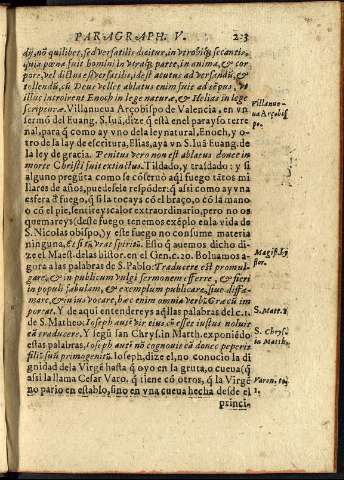 PARAGRAPH. V. 23
dij, nõ quilibet, sed versatilis dicitur, in vtrobiq; secantis,
quia pœna fuit homini in vtraq; parte, in anima, & cor
pore, vel dictus est versatilis, idest acutus ad versandũ, &
tollendũ, cũ Deus vellet ablatum enim suit ad
illus introirent Enoch in lege naturæ, & Helias in lege
scripturæ. Villanueva Arçobispo de Valencia, en vn
sermõ del Euang. S. Iuã, dize q̃ està en el parayso terre
nal, para q̃ como ay vno de la ley natural, Enoch, y o-
tro de la ley de escritura, Elias, aya vn S. Iuã Euang. de
la ley de gracia. Penitus vero non est ablatus donec in
morte Christi fuit extinctus. Tildado, y trasdado: y si
alguno pregũta como se cõseruò aqui fuego tãtos mi
llares de años, puedesele respõder: q̃ assi como ay vna
esfera de fuego, q̃ si la tocays cõ el braço, o cõ la mano
o cõ el pie, sentireys calor extraordinario, pero no os
quemareys (deste fuego tenemos exẽplo en la vida de
S. Nicolas obispo,) y este fuego no consume materia
ninguna, & si tũ vrae spiritũ. Esto q̃ auemos dicho di-
ze el Maest. de las histor. en el Gen. c. 20. Boluamos a-
gora a las palabras de S. Pablo: Traducere est promul-
gare, & in publicum vulgi sermonem efferre, & fieri
in populi fabulam, & exemplum publicare, siue diffa-
mare, & in ius vocare, hæc enim omnia verbũ Græcũ im
portat. Y de aqui entendereys aq̃llas palabras del c. 1.
de S. Matheo: Ioseph autẽ vir eius cũ esset iustus noluit
eã traducere. Y segũ Ian Chrys. in Matth. exponiẽdo
estas palabras, Ioseph autẽ nõ cognouit eã donec peperit
filiũ suũ primogenitũ. Ioseph, dize el, no conocio la di
gnidad de la Virgẽ hasta q̃ oyo en la gruta, o cueua (q̃
assi la llama Cesar Varo. q̃ tiene cõ otros, q̃ la Virgẽ
no pario en establo, sino en vna cueua hecha desde el
princi-
Villanue-
ua Arçobis
po.
Magist. Hy
stor.
S. Matt. 1
S. Chrys.
in Matth.
Varon. to.
1.